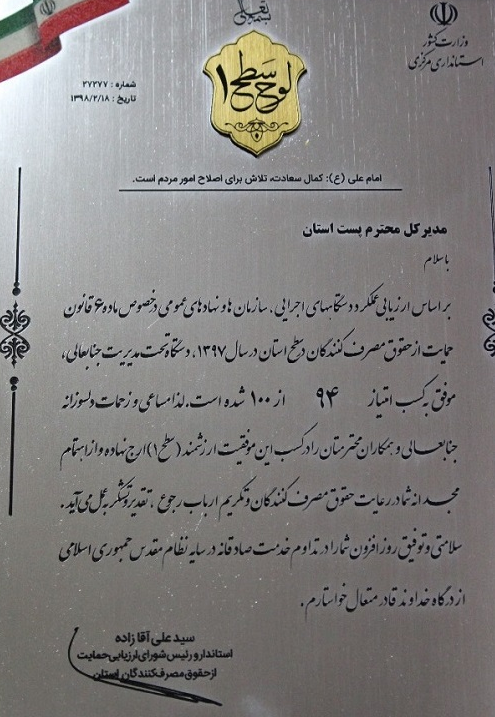 بسمه تعالی
وزارت کشور
استانداری مرکزی
لوح سطح ۱
شماره : ۲۷۲۷۷
تاریخ : ۱۳۹۸/۲/۱۸
امام علی (ع): کمال سعادت، تلاش برای اصلاح امور مردم است.
مدیرکل محترم پست استان
با سلام
بر اساس ارزیابی عملکرد دستگاههای اجرایی ، سازمان ها و نهادهای عمومی درخصوص ماده ۶ قانون
حمایت از حقوق مصرف کنندگان در سطح استان در سال ۱۳۹۷، دستگاه تحت مدیریت جنابعالی ،
موفق به کسب امتیاز ۹۴ از ۱۰۰ شده است. لذا مساعی و زحمات دلسوزانه
جنابعالی و همکاران محترمتان را در کسب این موفقیت ارزشمند (سطح ۱) ارج نهاده و از اهتمام
مجدانه شما در رعایت حقوق مصرف کنندگان و تکریم ارباب رجوع ، تقدیر و تشکر به عمل می آید.
سلامتی و توفیق روز افزون شما را در تداوم خدمت صادقانه در سایه نظام مقدس جمهوری اسلامی
از درگاه خداوند قادر متعال خواستارم .
سید علی آقا زاده
استاندار و رئیس شورای ارزیابی حمایت
از حقوق مصرف کنندگان استان